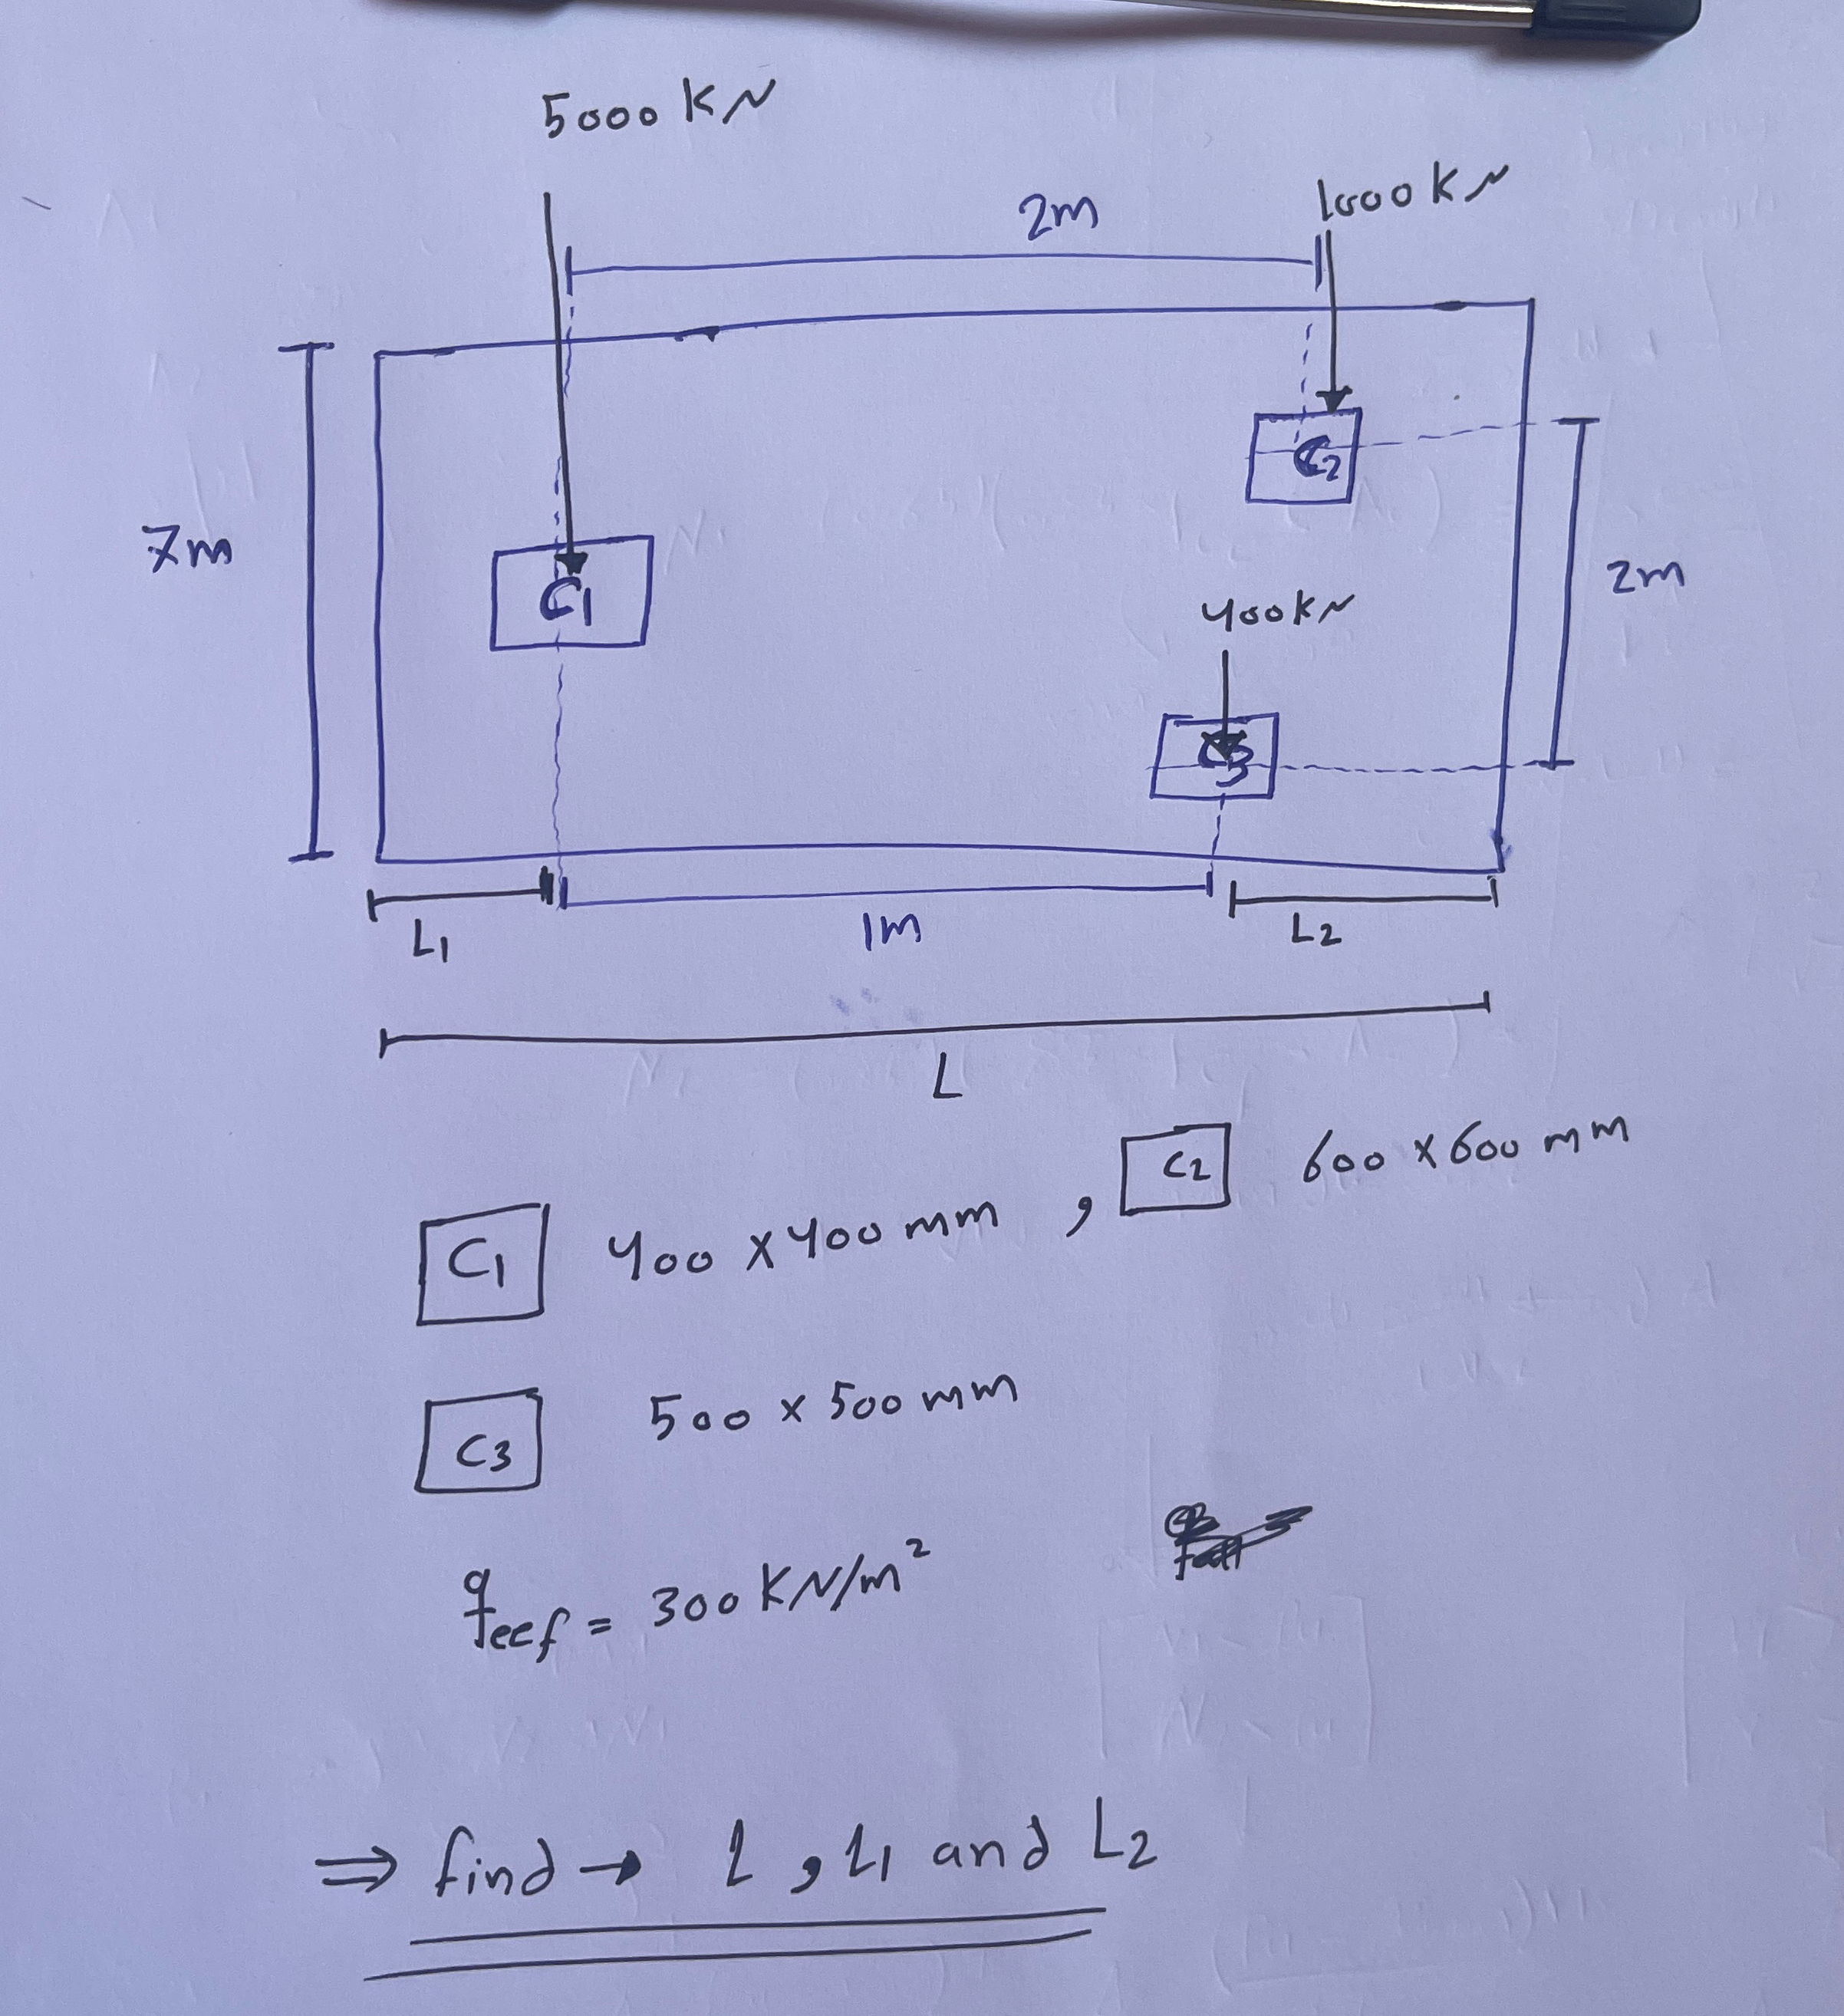 5000 KN
1000 KN
2m
C2
7m
C1
2m
400KN
C3
L1
1m
L2
L
C1 400 x 400 mm , C2 600 x 600 mm
C3 500 x 500 mm
qeef = 300 KN/m²
⇒ find → L , L1 and L2